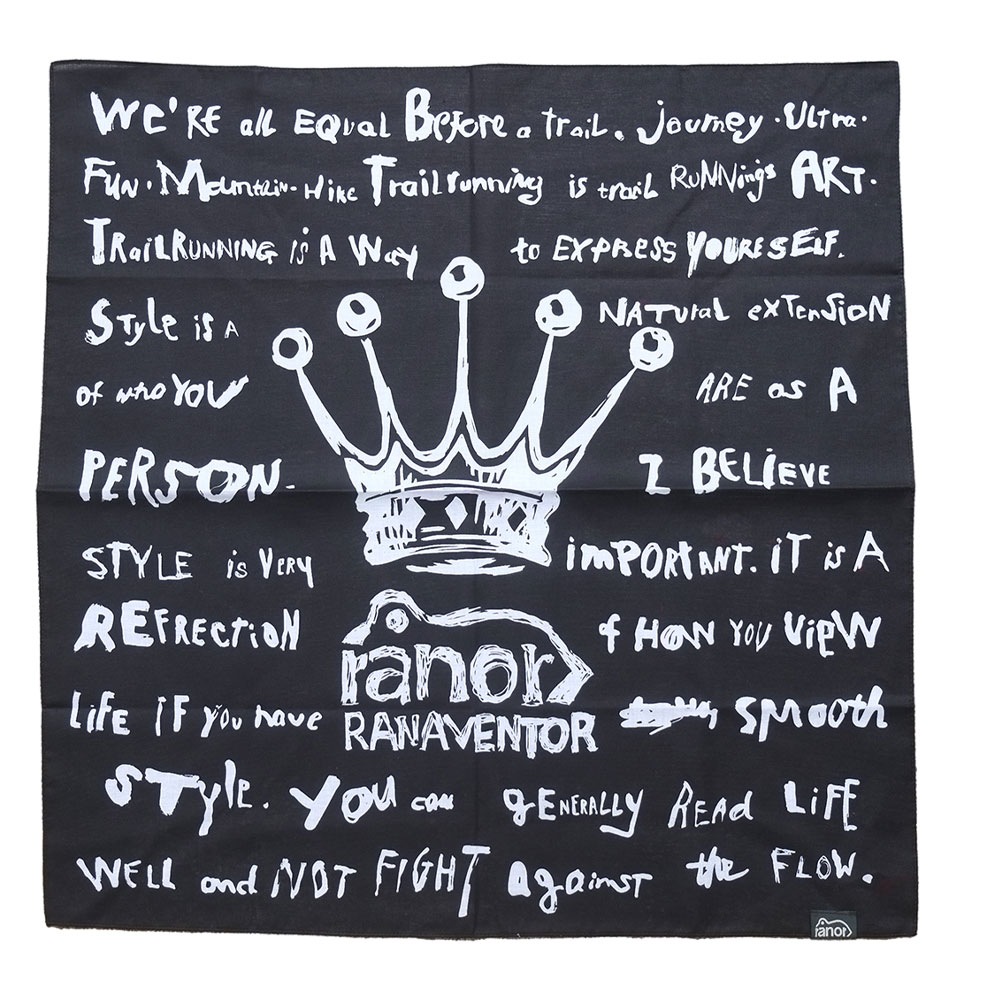 WE'RE all EQUAL BEFore a traiL. Journey·ULtra·
FUN·Mountain·Hike Trailrunning is traiL RUNNings ART.
TRaiLRUNNING is A Way to EXPRESS YOURESELF.
STyLe is A NATUraL exTenSioN
of who YOU ARE as A
PERSON. I BELiEVE
STYLE is VERy imPORtANT. iT is A
REFRECTiON f HOW YOU ViEW
LiFE iF You have SMooth
STyle. YOU can gENERALLY READ LiFE
WELL and NOT FIGHT against the FLOW.
ranor
RANAVENTOR
ranor